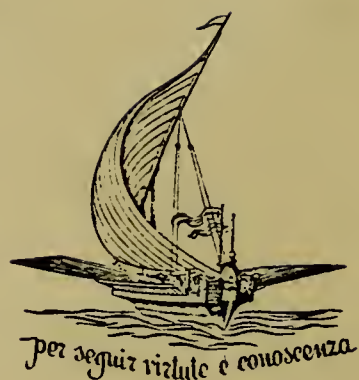 per seguir virtute e conoscenza